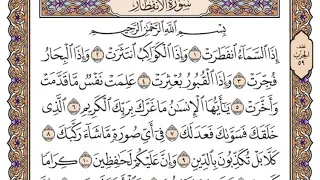 سُورَةُ الانفِطَارِ
بِسْمِ اللَّهِ الرَّحْمَٰنِ الرَّحِيمِ
إِذَا السَّمَاءُ انفَطَرَتْ ١ وَإِذَا الْكَوَاكِبُ انتَثَرَتْ ٢ وَإِذَا الْبِحَارُ
فُجِّرَتْ ٣ وَإِذَا الْقُبُورُ بُعْثِرَتْ ٤ عَلِمَتْ نَفْسٌ مَّا قَدَّمَتْ
وَأَخَّرَتْ ٥ يَٰأَيُّهَا الْإِنسَٰنُ مَا غَرَّكَ بِرَبِّكَ الْكَرِيمِ ٦ الَّذِي
خَلَقَكَ فَسَوَّىٰكَ فَعَدَلَكَ ٧ فِي أَيِّ صُورَةٍ مَّا شَاءَ رَكَّبَكَ ٨
كَلَّا بَلْ تُكَذِّبُونَ بِالدِّينِ ٩ وَإِنَّ عَلَيْكُمْ لَحَٰفِظِينَ ١٠ كِرَامًا
الحزب
٥٩